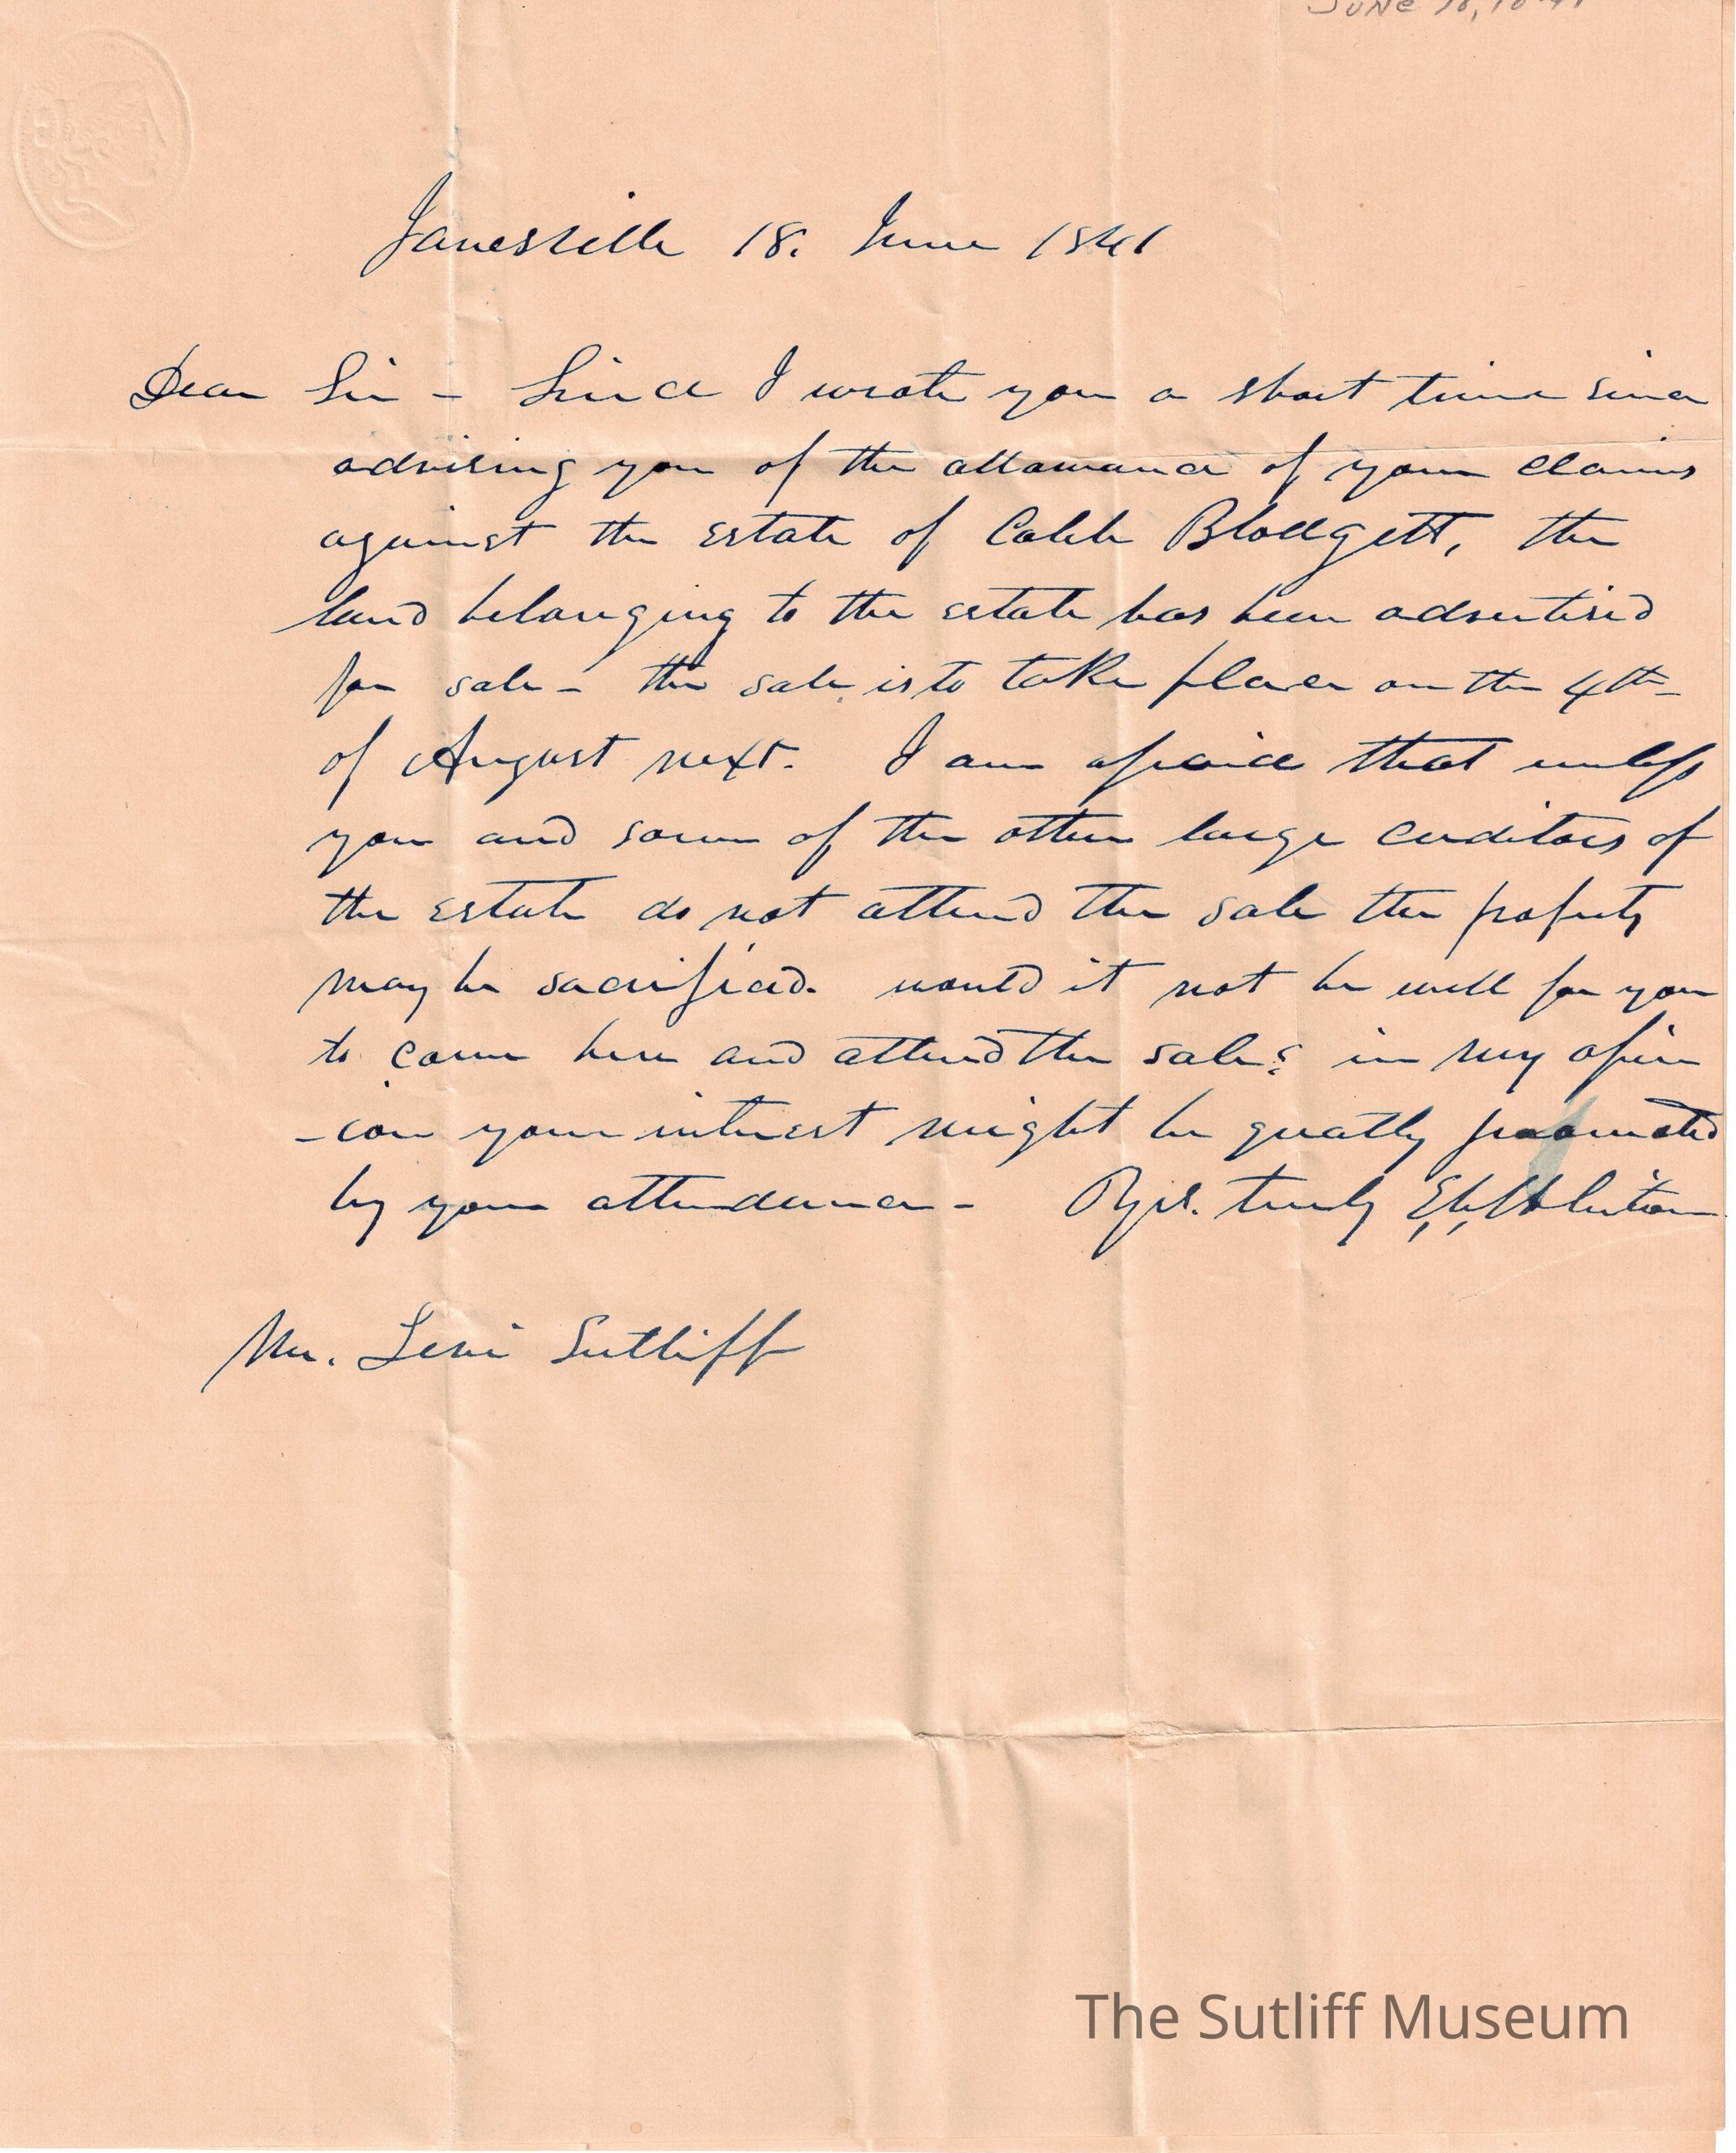 JUNE 18, 1841
Janesville 18. June 1841
Dear Sir - Since I wrote you a short time since
advising you of the allowance of your claims
against the estate of Caleb Blodgett, the
land belonging to the estate has been advertised
for sale - the sale is to take place on the 4th
of August next. I am afraid that unless
you and some of the other large creditors of
the estate do not attend the sale the property
may be sacrificed. would it not be well for you
to come here and attend the sale? in my opin
-ion your interest might be greatly promoted
by your attendance - truly
Mr. Levi Sutliff
The Sutliff Museum